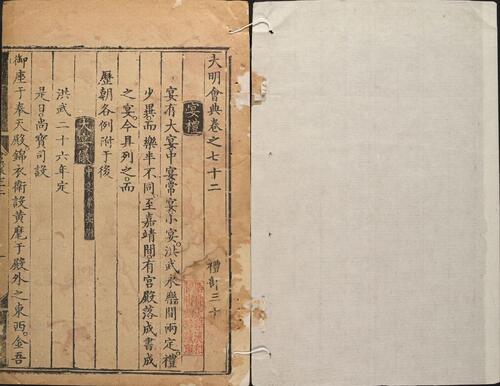 大明會典卷之七十二
禮部三十
宴禮
宴有大宴中宴常宴小宴。洪武永樂間兩定。禮
少異。而樂半不同至嘉靖間。有宮殿落成書成
之宴。今具列之。而
歷朝各例附于後
大宴儀
洪武二十六年定
是日。尚寶司設
御座于奉天殿。錦衣衛設黃麾于殿外之東西。金吾